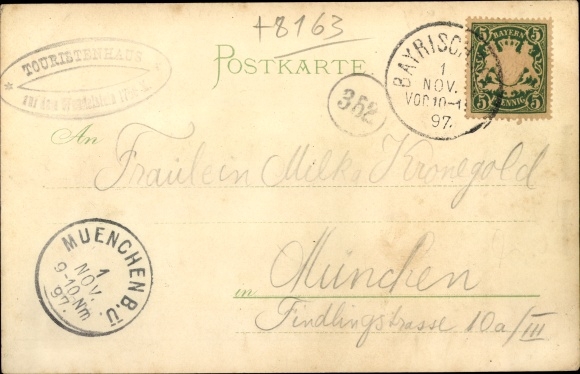 +8163
TOURISTENHAUS
auf dem
POSTKARTE.
352
BAYRISCH
1
NOV.
VOR.10-11
97.
BAYERN
5 5
5 5
PFENNIG
An
Fräulein Milka Kronegold
in München
Findlingstrasse 10a/III
MUENCHEN B.Ü.
1
NOV.
9-10.Nm
97.